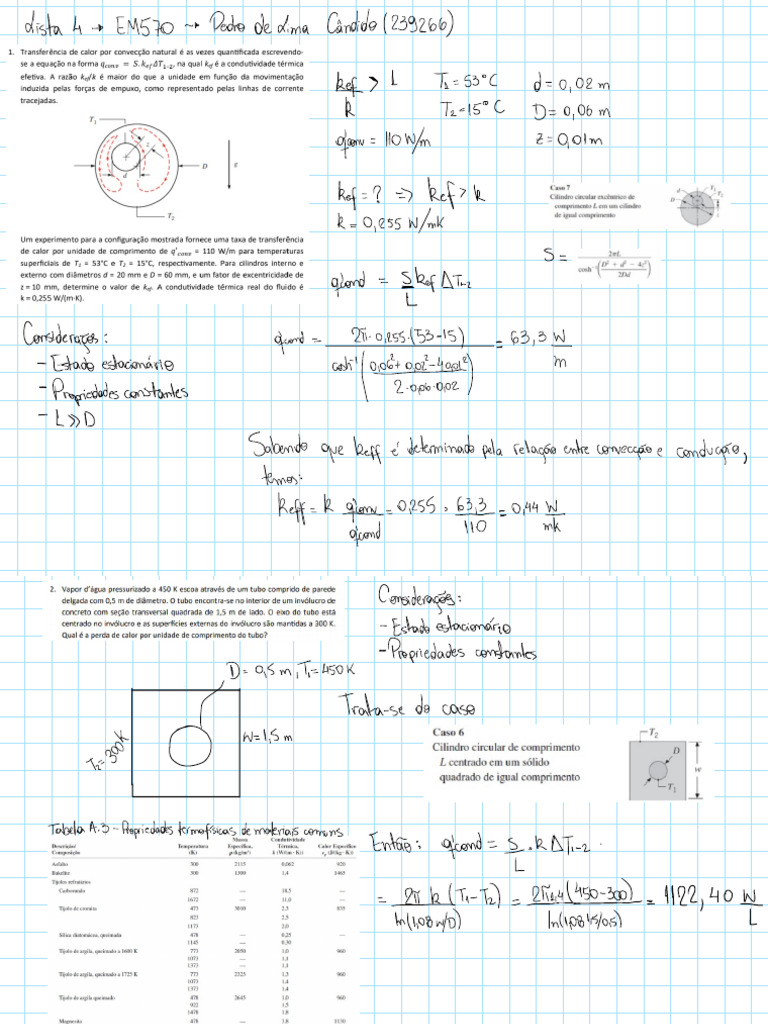 Lista 4 → EM570 → Pedro de Lima Cândido (239266)
1. Transferência de calor por convecção natural é as vezes quantificada escrevendo-
se a equação na forma q_conv = S. k_ef ΔT₁₋₂, na qual k_ef é a condutividade térmica
efetiva. A razão k_ef/k é maior do que a unidade em função da movimentação
induzida pelas forças de empuxo, como representado pelas linhas de corrente
tracejadas.
T₁
z
D
g
d
T₂
Um experimento para a configuração mostrada fornece uma taxa de transferência
de calor por unidade de comprimento de q'_conv = 110 W/m para temperaturas
superficiais de T₁ = 53°C e T₂ = 15°C, respectivamente. Para cilindros interno e
externo com diâmetros d = 20 mm e D = 60 mm, e um fator de excentricidade de
z = 10 mm, determine o valor de k_ef. A condutividade térmica real do fluido é
k = 0,255 W/(m·K).
kef/k > 1 T₁ = 53°C d = 0,02 m
T₂ = 15°C D = 0,06 m
q'conv = 110 W/m z = 0,01 m
kef = ? ⇒ kef > k
k = 0,255 W/mK
Caso 7
Cilindro circular excêntrico de
comprimento L em um cilindro
de igual comprimento
S = 2πL / cosh⁻¹((D² + d² − 4z²)/2Dd)
q'cond = S/L kef ΔT₁₋₂
Considerações:
- Estado estacionário
- Propriedades constantes
- L >> D
q'cond = 2π·0,255·(53-15) / cosh⁻¹((0,06² + 0,02² - 4·0,01²)/(2·0,06·0,02)) = 63,3 W/m
Sabendo que keff é determinado pela relação entre convecção e condução,
temos:
keff = k q'conv/q'cond = 0,255 · 63,3/110 = 0,44 W/mk
2. Vapor d'água pressurizado a 450 K escoa através de um tubo comprido de parede
delgada com 0,5 m de diâmetro. O tubo encontra-se no interior de um invólucro de
concreto com seção transversal quadrada de 1,5 m de lado. O eixo do tubo está
centrado no invólucro e as superfícies externas do invólucro são mantidas a 300 K.
Qual é a perda de calor por unidade de comprimento do tubo?
Considerações:
- Estado estacionário
- Propriedades constantes
D = 0,5 m, T₁ = 450 K
W = 1,5 m
T₂ = 300K
Trata-se do caso
Caso 6
Cilindro circular de comprimento
L centrado em um sólido
quadrado de igual comprimento
T₂
D
w
T₁
Tabela A.3 - Propriedades termofísicas de materiais comuns
Descrição/Composição Temperatura (K) Massa Específica, ρ(kg/m³) Condutividade Térmica, k (W/(m · K)) Calor Específico c_p (J/(kg · K))
Asfalto 300 2115 0,062 920
Baquelite 300 1300 1,4 1465
Tijolos refratários
Carborundo 872 — 18,5 —
1672 — 11,0 —
Tijolo de cromita 473 3010 2,3 835
823 2,5
1173 2,0
Sílica diatomácea, queimada 478 — 0,25 —
1145 — 0,30
Tijolo de argila, queimado a 1600 K 773 2050 1,0 960
1073 — 1,1
1373 — 1,1
Tijolo de argila, queimado a 1725 K 773 2325 1,3 960
1073 1,4
1373 1,4
Tijolo de argila queimado 478 2645 1,0 960
922 1,5
1478 1,8
Magnesita 478 — 3,8 1130
Então: q'cond = S/L · k ΔT₁₋₂
= 2π k (T₁ - T₂) / ln(1,08 w/D) = 2π1,4(450-300) / ln(1,08 1,5/0,5) = 1122,40 W/L